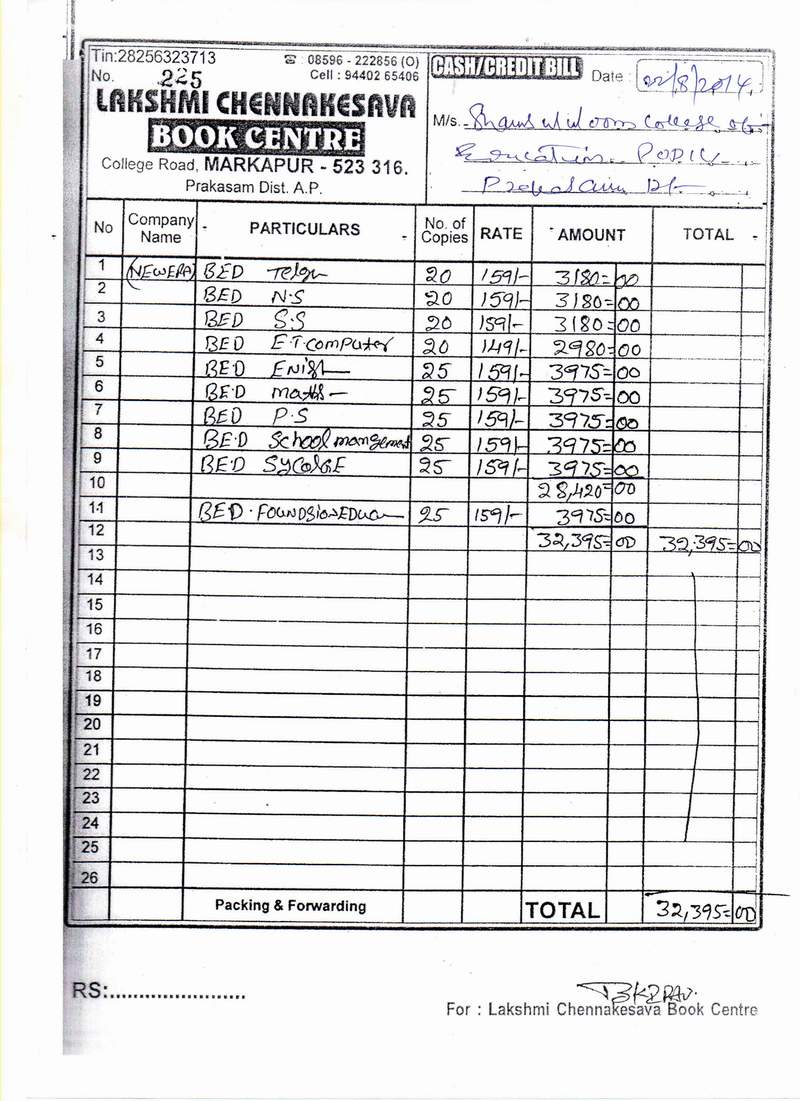 Tin:28256323713 ☎ : 08596 - 222856 (O)
No. 225 Cell : 94402 65406
LAKSHMI CHENNAKESAVA
BOOK CENTRE
College Road, MARKAPUR - 523 316.
Prakasam Dist. A.P.
CASH/CREDIT BILL Date : 22/8/2014
M/s. College of
Education. PODILI
Prakasam Dt
No Company Name PARTICULARS No. of Copies RATE AMOUNT TOTAL
1 (NEWERA) BED Telgu 20 159/- 3180=00
2 BED N.S 20 159/- 3180=00
3 BED S.S 20 159/- 3180=00
4 BED E.T.Computer 20 149/- 2980=00
5 BED 25 159/- 3975=00
6 BED maths 25 159/- 3975=00
7 BED P.S 25 159/- 3975=00
8 BED School mangement 25 159/- 3975=00
9 BED 25 159/- 3975=00
10 28,420=00
11 BED. 25 159/- 3975=00
12 32,395=00 32,395=00
13
14
15
16
17
18
19
20
21
22
23
24
25
26
Packing & Forwarding TOTAL 32,395=00
RS:.......................
For : Lakshmi Chennakesava Book Centre